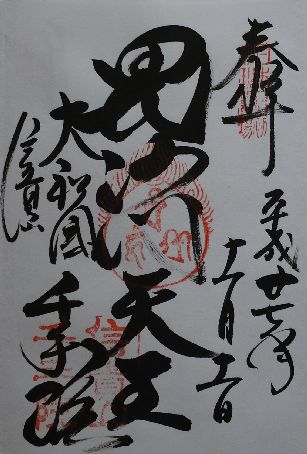 奉拝
平成廿七年
十一月十一日
毘沙門天王
大和國
信貴山
千手院